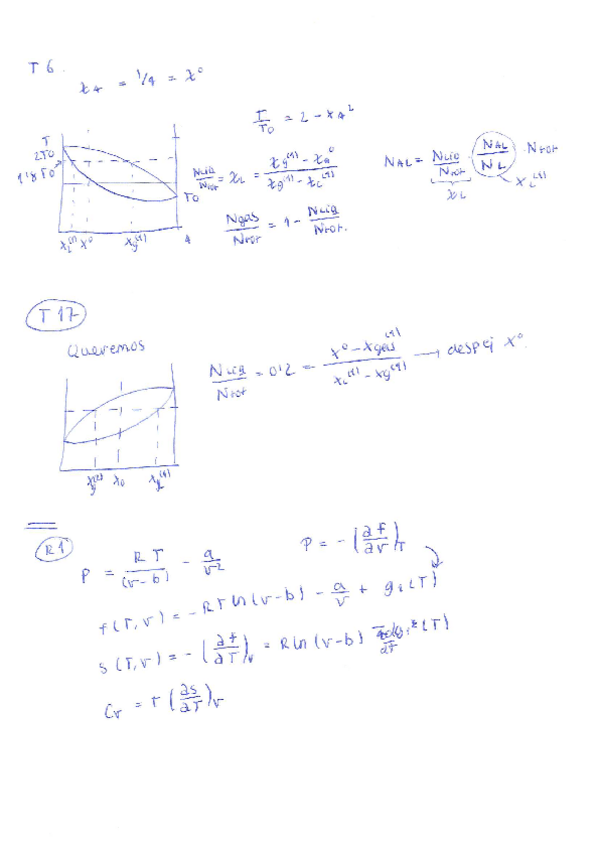 T 6.
x_A = 1/4 = x⁰
T/T₀ = 2 - x_A²
T
2T₀
1'8T₀
T₀
x_L^(1) x⁰ x_g^(1) 1
N_LIQ/N_TOT = x_L = (x_g^(1) - x_A⁰)/(x_g^(1) - x_L^(1))
N_AL = N_LIQ/N_TOT · N_AL/N_L · N_TOT
x_L x_L^(1)
N_gas/N_TOT = 1 - N_LIQ/N_TOT.
T 17
Queremos
N_LIQ/N_TOT = 0'2 = (x⁰ - x_gas^(1))/(x_L^(1) - x_g^(1)) → despej x⁰.
x₀
R1
P = RT/(v-b) - a/v²
P = -(∂f/∂v)_T
f(T,v) = -RT ln(v-b) - a/v + g_i(T)
s(T,v) = -(∂f/∂T)_v = R ln(v-b)
C_v = T (∂s/∂T)_v